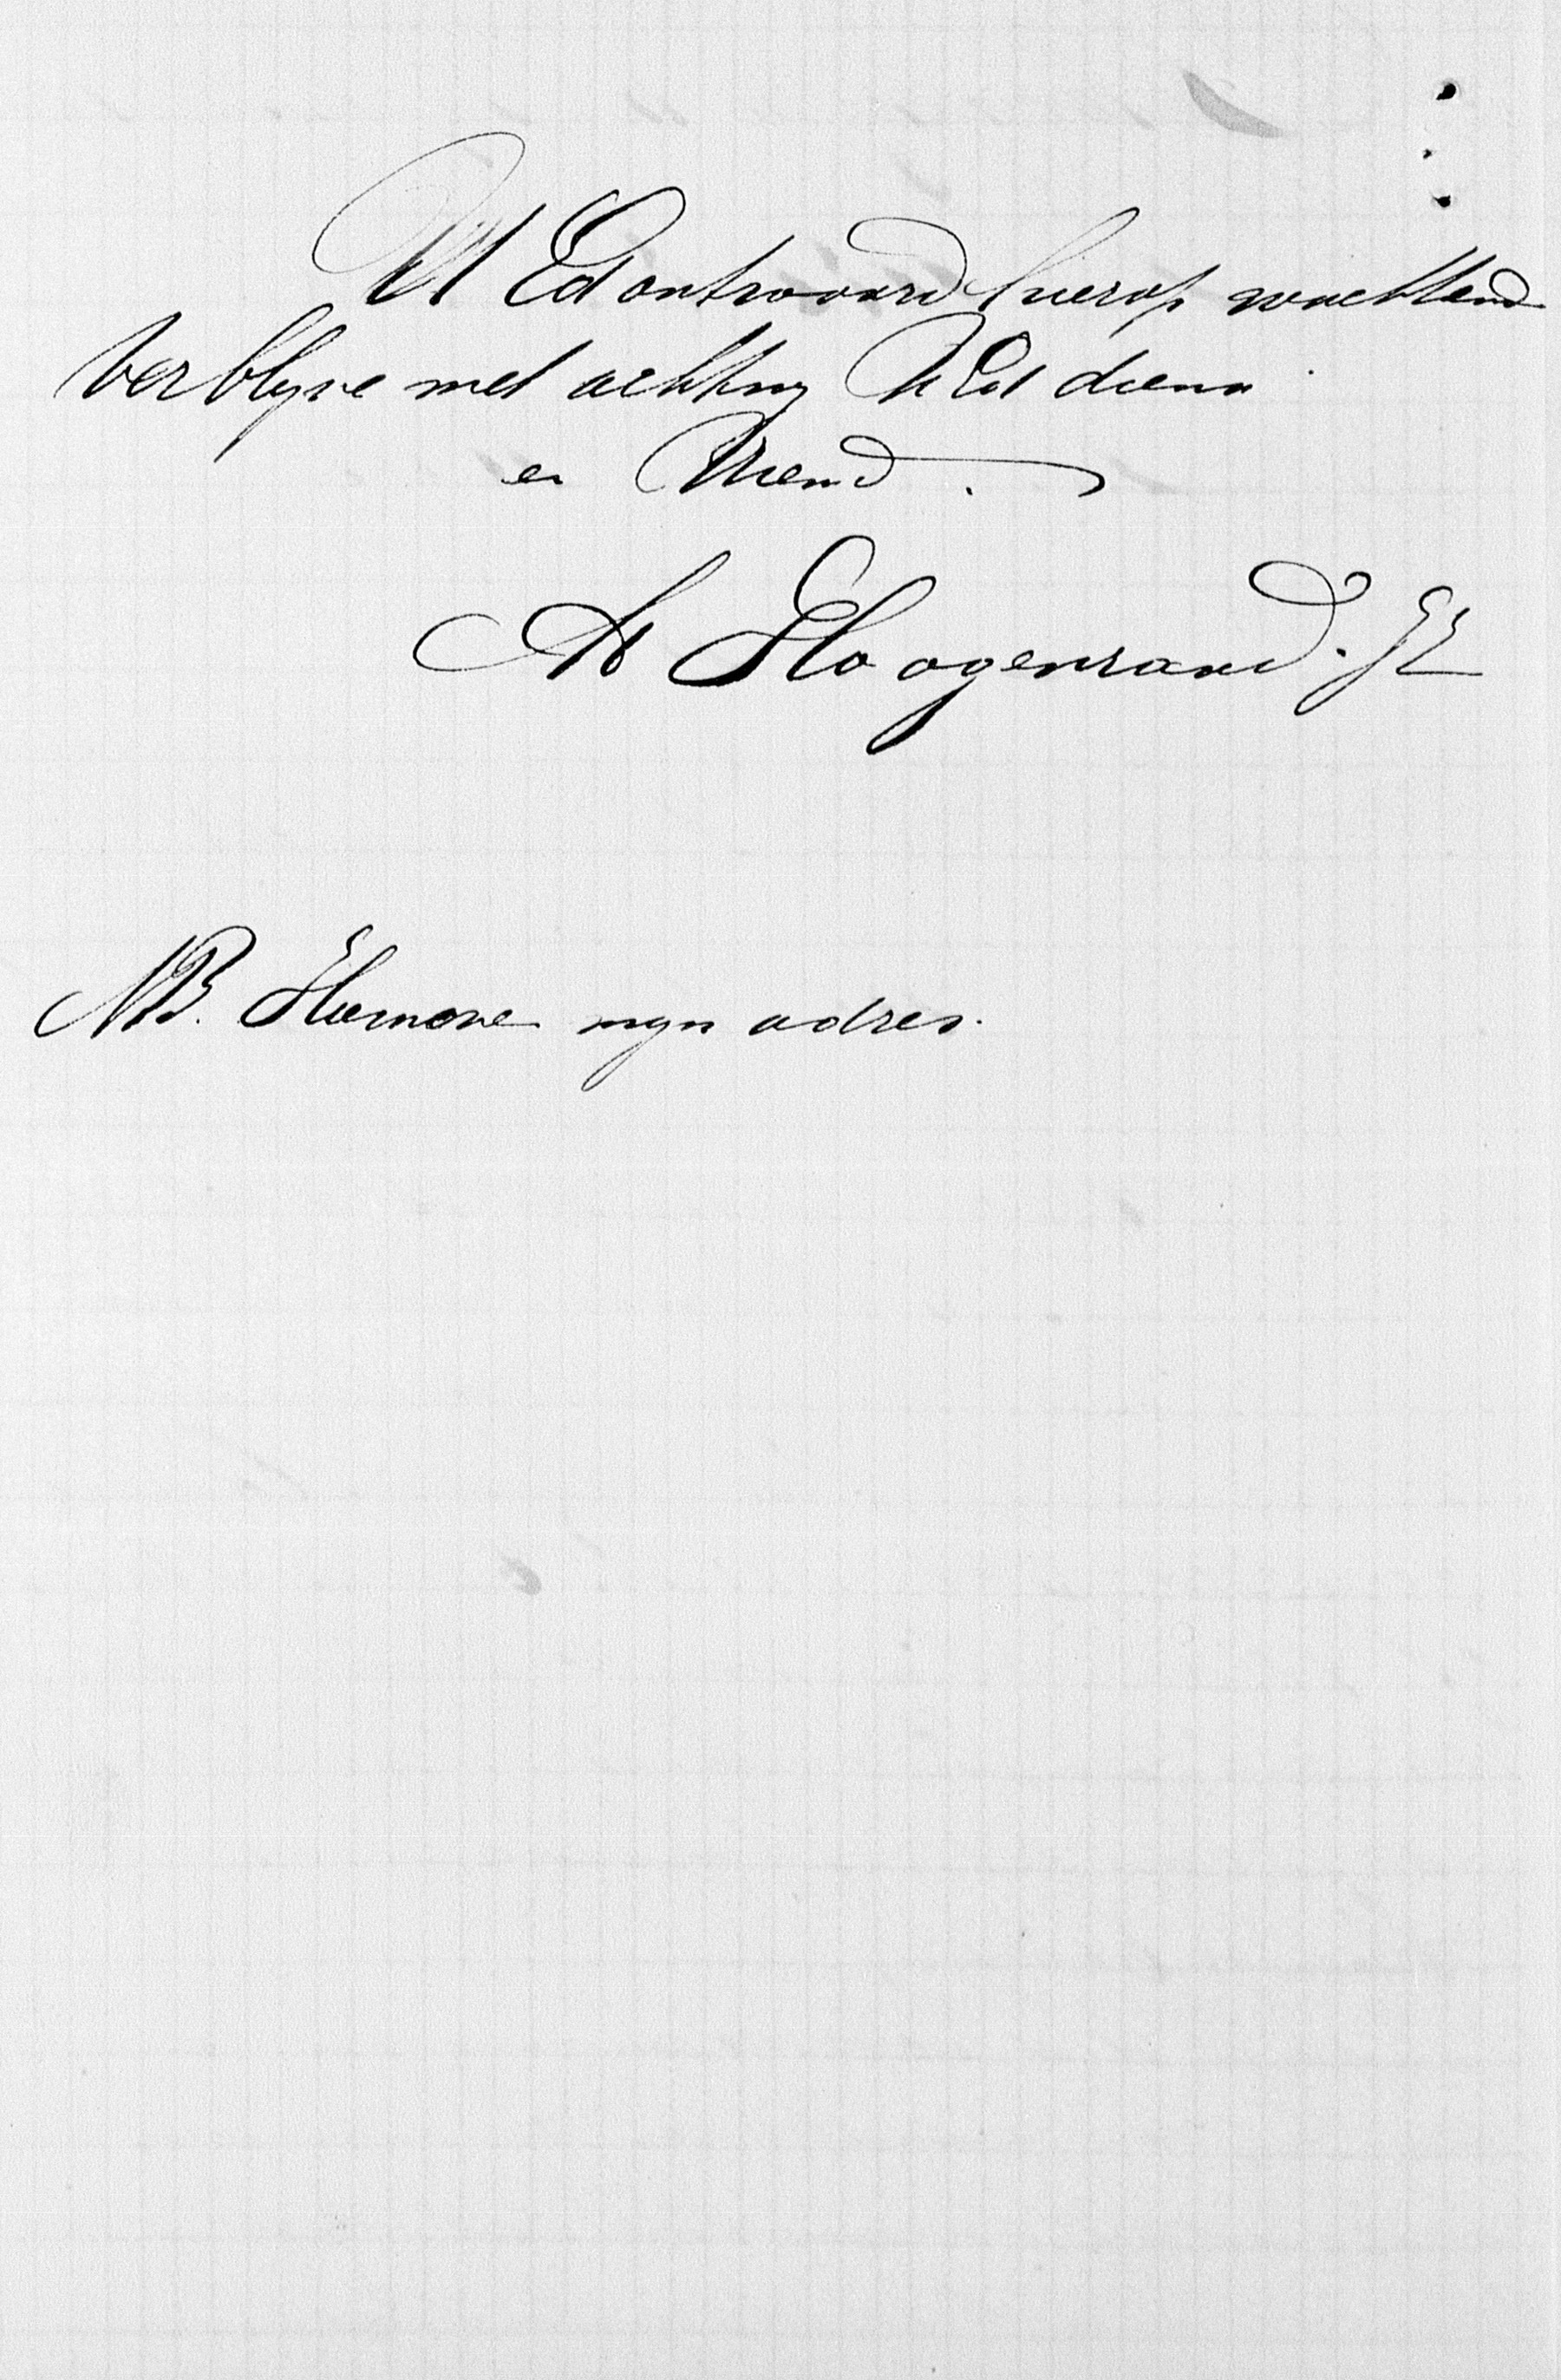 U Ed antwoord hierop wachtend
Verblyve met achting U Ed diena
en Vriend.
A Hoogenraad. Jz
NB. Hiernone myn adres.